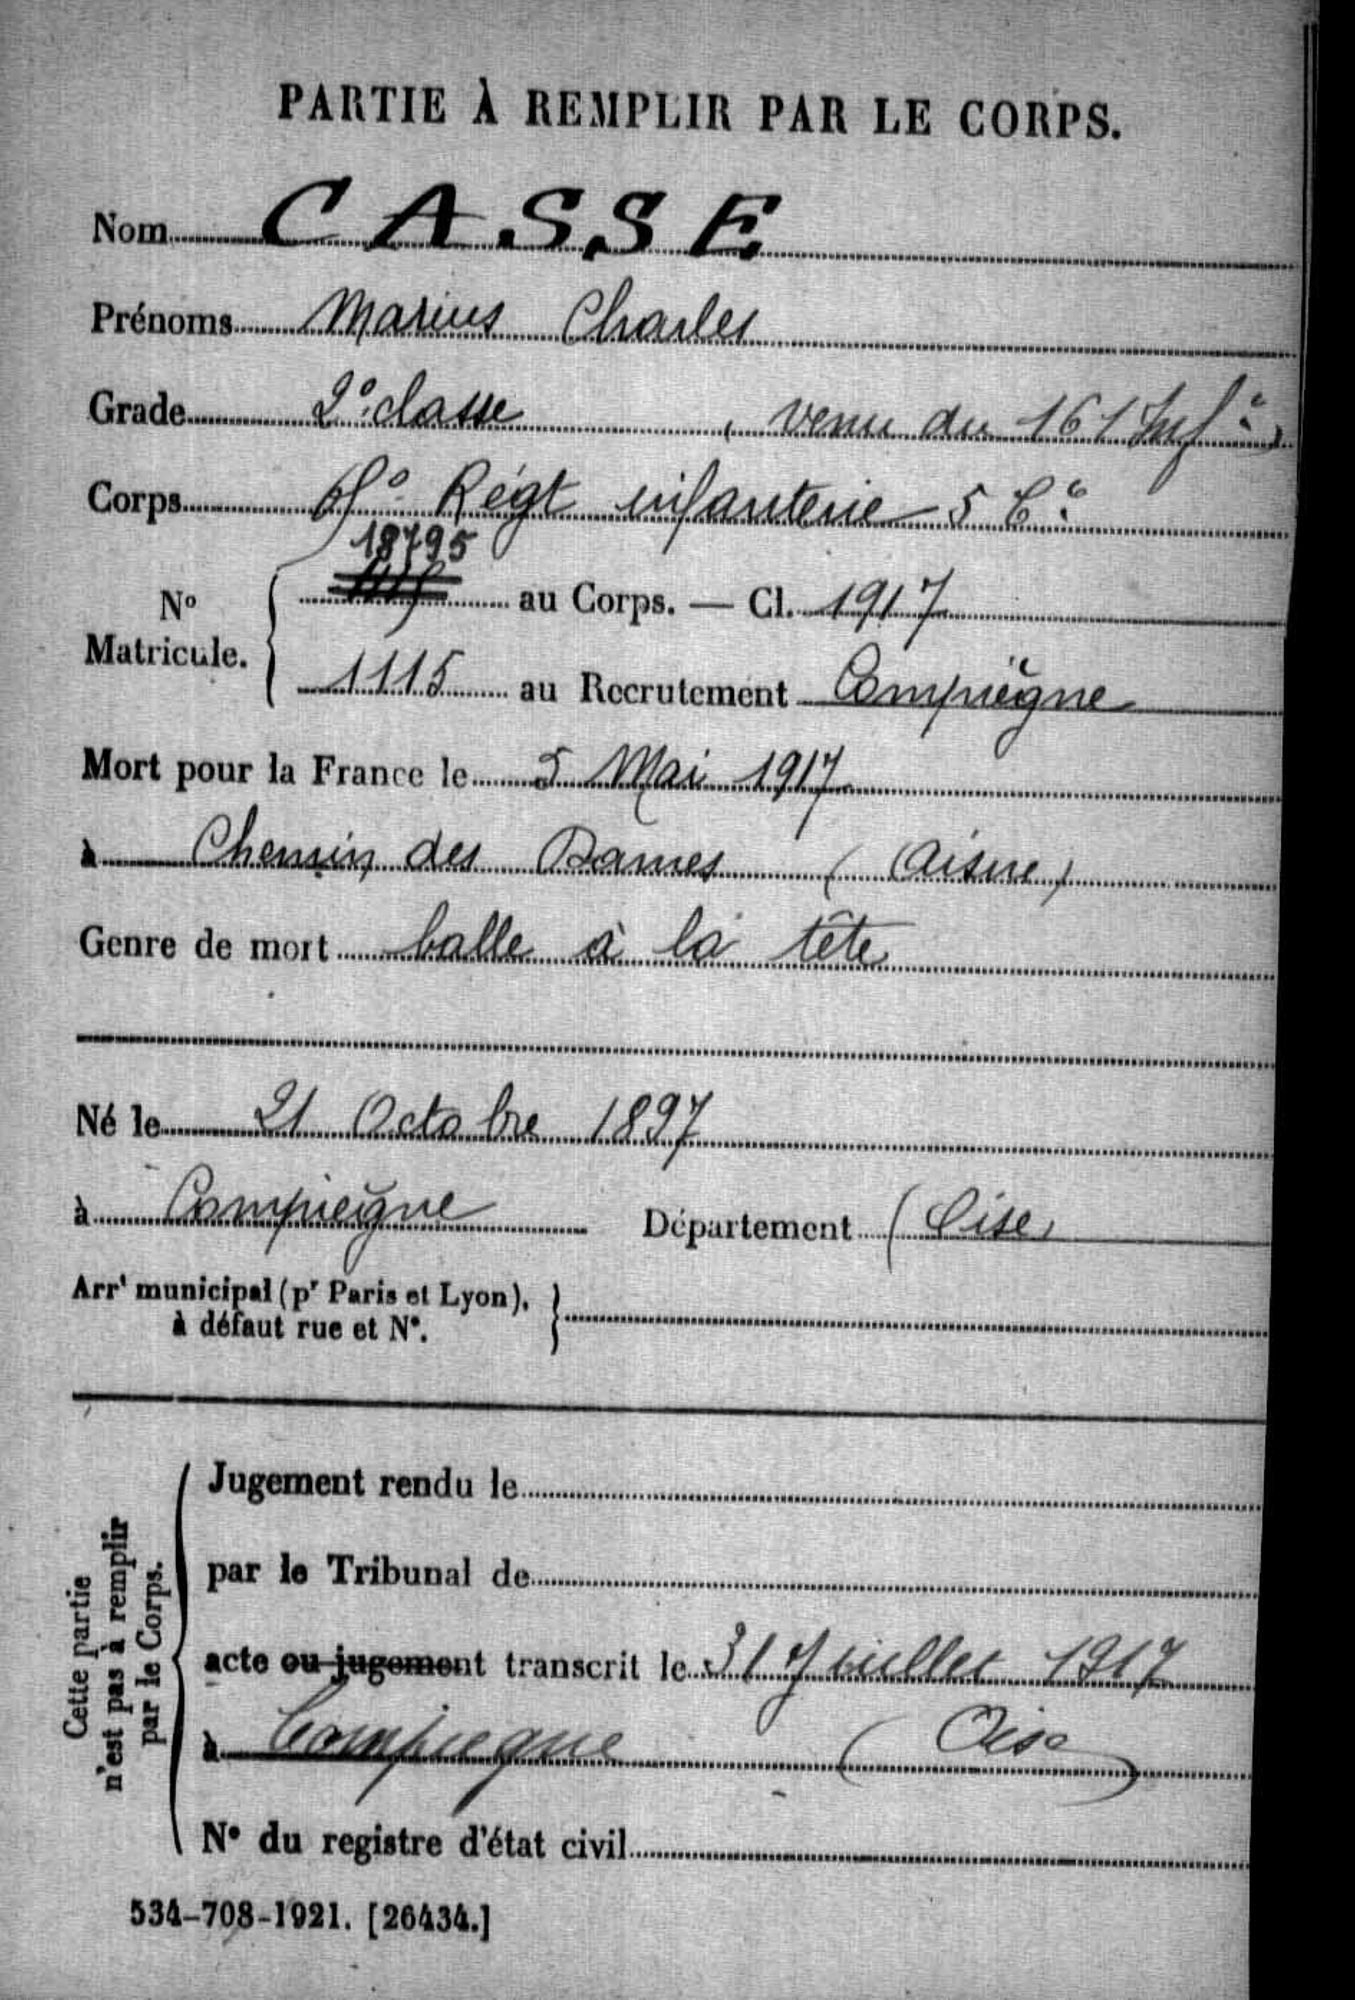 PARTIE À REMPLIR PAR LE CORPS.
Nom CASSE
Prénoms Marius Charles
Grade 2e classe, venu du 161 Infie
Corps Régt infanterie 5 Cie
18795
No Matricule. au Corps. — Cl. 1917
1115 au Recrutement Compiègne
Mort pour la France le 5 Mai 1917
à Chemin des Dames (Aisne)
Genre de mort balle à la tête
Né le 21 Octobre 1897
à Compiègne Département (Oise)
Arrt municipal (pr Paris et Lyon), à défaut rue et N°.
Cette partie n'est pas à remplir par le Corps.
Jugement rendu le
par le Tribunal de
acte ou jugement transcrit le 31 Juillet 1917
à Compiegne (Oise)
N° du registre d'état civil
534-708-1921. [26434.]